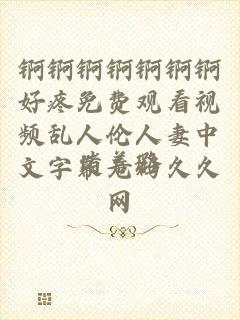 锕锕锕锕锕锕锕
好疼免费观看视
频乱人伦人妻中
文字幕无码久久
网